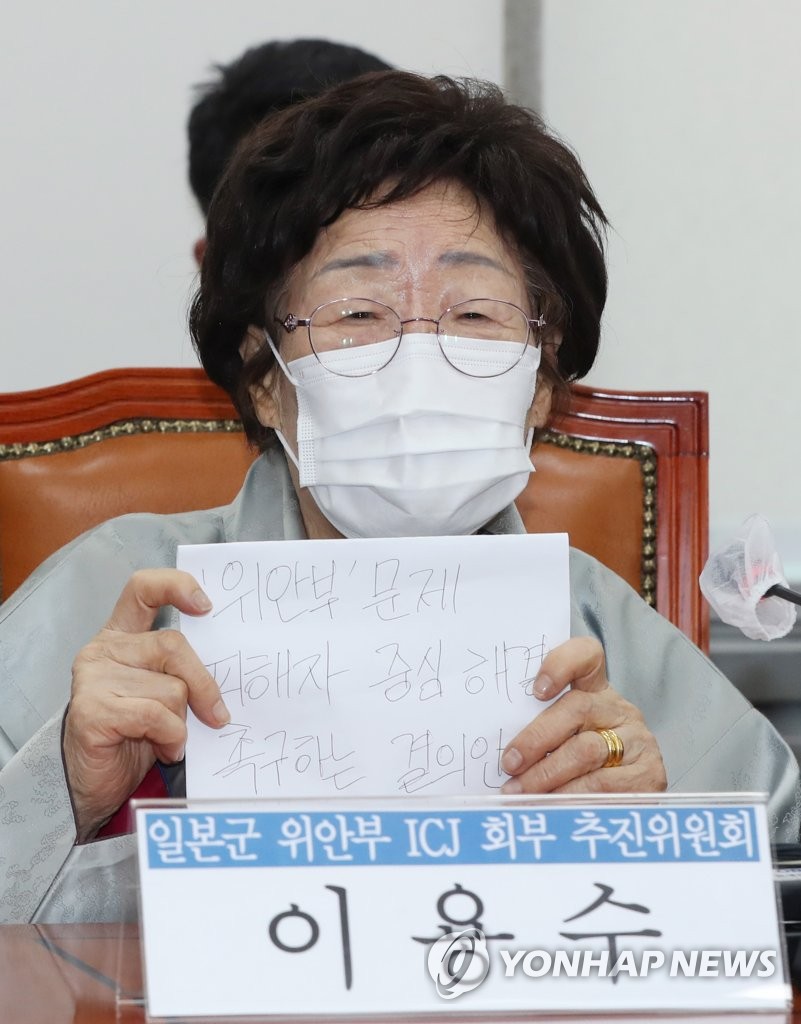 '위안부' 문제
피해자 중심 해결
촉구하는 결의안
일본군 위안부 ICJ 회부 추진위원회
이용수
YONHAP NEWS